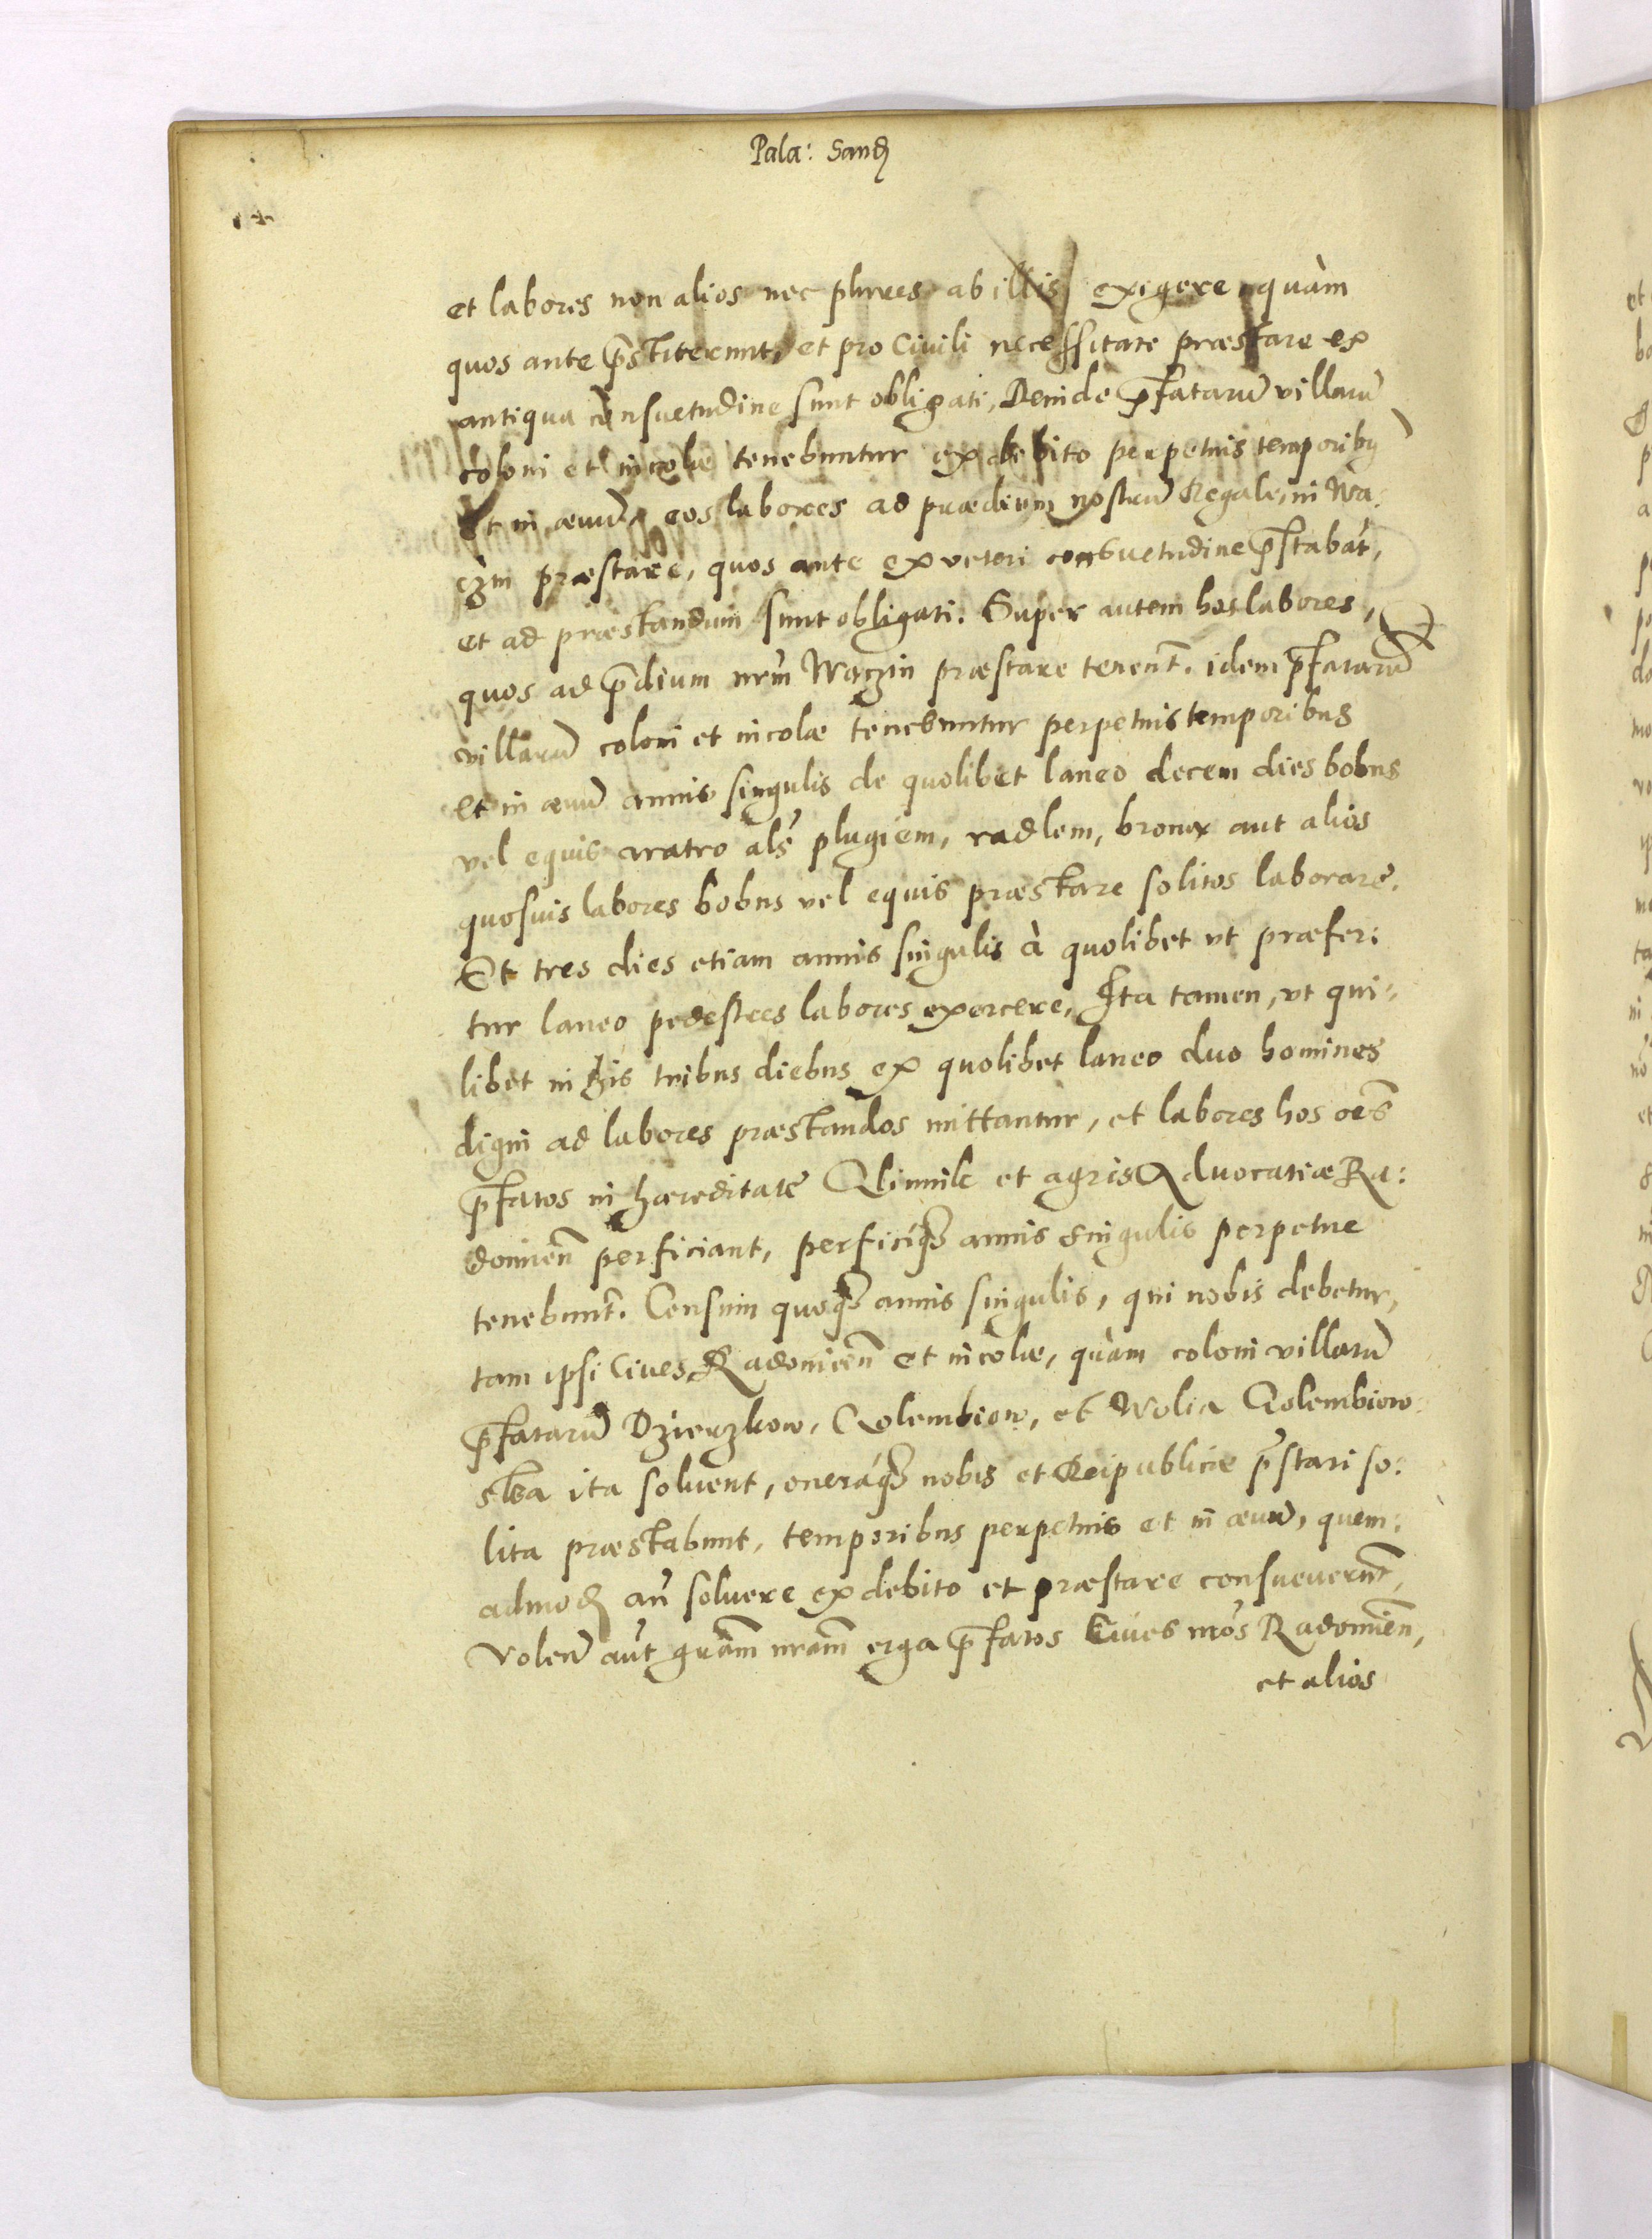 Pala: Sand
et labores non alios nec plures ab illis exigere, quàm
quos ante p̃stiterunt, et pro Ciuili necessitate præstare ex
antiqua consuetudine sunt obligati, Deinde p̃fatarũ villarũ
coloni et incolæ tenebuntur ex debito perpetuis temporibꝰ
et in æuũ, eos labores ad prædium nostrũ Regale, in Wa:
czin præstare, quos ante ex veteri consuetudine p̃stabãt,
et ad præstandum sunt obligati: Super autem hos labores,
quos ad p̃dium nrm̃ Waczin præstare tenent̃. idem p̃fatarũ
villarũ coloni et incolæ tenebuntur perpetuis temporibus
et in æuũ annis singulis de quolibet laneo decem dies bobus
vel equis aratro als̃ plugiem, radlem, brona aut alios
quosuis labores bobus vel equis præstare solitos laborare.
Et tres dies etiam annis singulis à quolibet vt præfer:
tur laneo pedestres labores exercere, Ita tamen, vt qui:
libet in his tribus diebus ex quolibet laneo duo homines
digni ad labores præstandos mittantur, et labores hos oẽs
p̃fatos in hæreditate et agris Aduocatiæ Ra:
domien̄ perficiant, perficiq̃ annis singulis perpetue
tenebunt̃. Censum quoq̃ annis singulis, qui nobis debetur,
tam ipsi Ciues Radomien̄ et incolæ, quàm coloni villarũ
p̃fatarũ Dzierzkow, Golembiow, et Wolia Golembiow:
ska ita soluent, oneraq̃ nobis et Reipublicæ p̃stari so:
lita præstabunt, temporibus perpetuis et in æuũ, quem:
admod añ soluere ex debito et præstare consueuerunt̃,
Volen̄ aũt gr̃am nr̃am erga p̃fatos Ciues nr̃os Radomien̄,
et alios